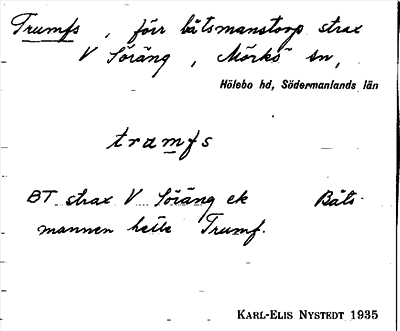 Trumfs, förr båtsmanstorp strax
V Söräng, Mörkö sn,
Hölebo hd, Södermanlands län
trumfs
BT strax V Söräng ek Båts-
mannen hette Trumf.
KARL-ELIS NYSTEDT 1935